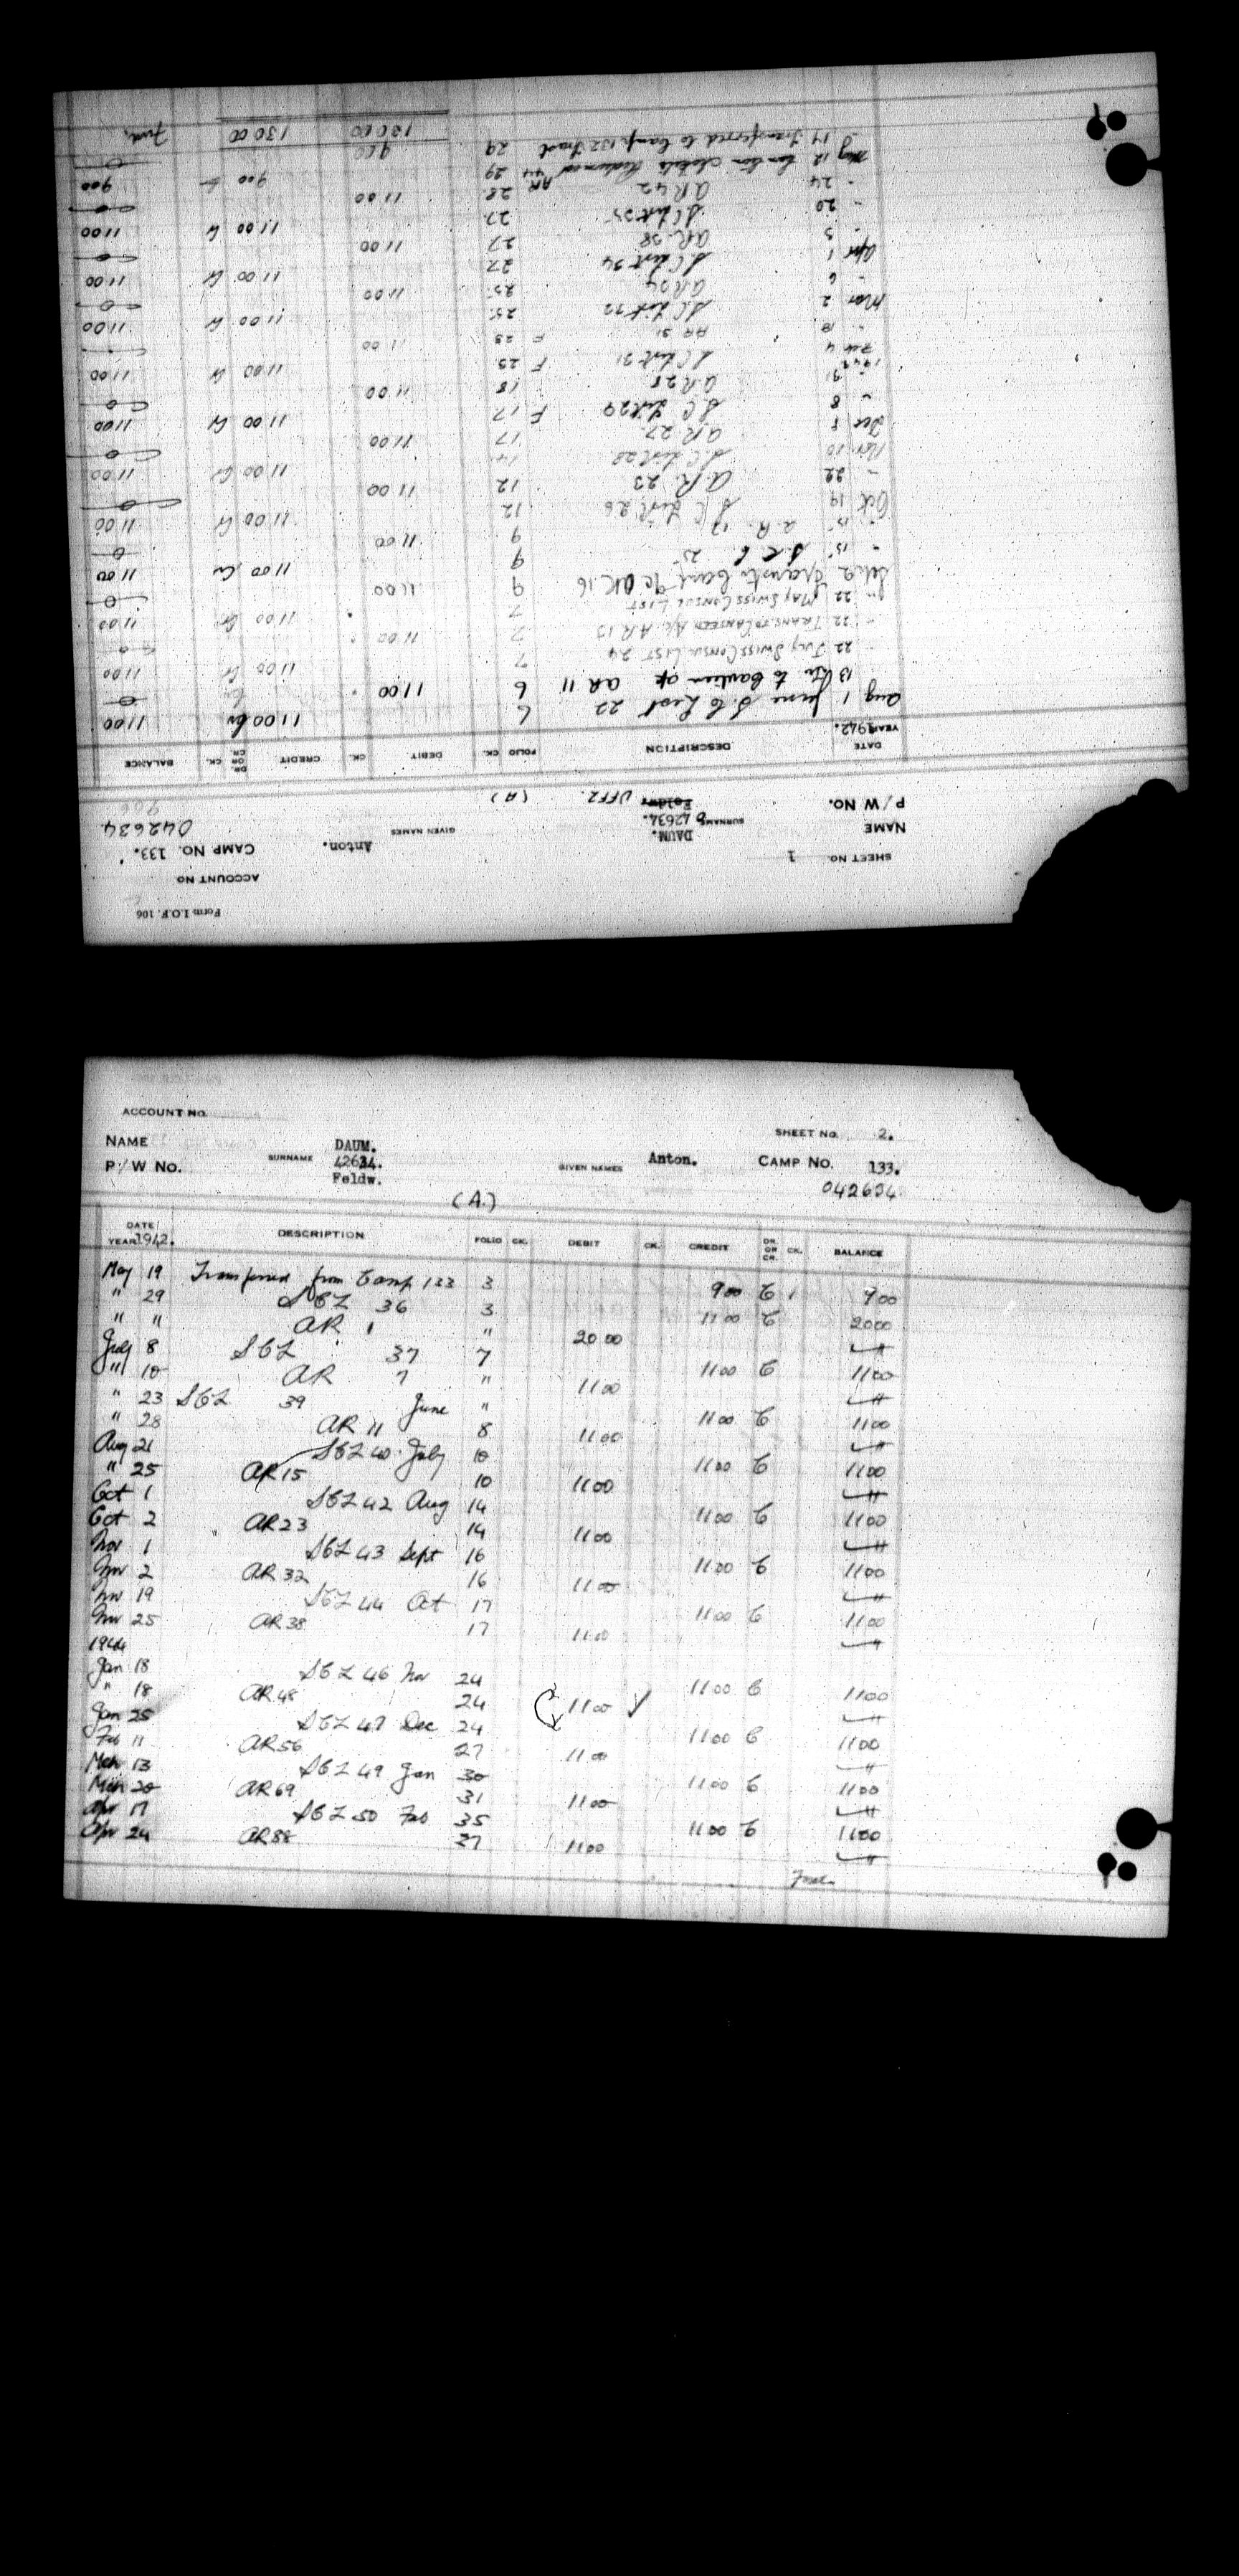 Form I.O.F. 106
ACCOUNT NO
SHEET NO. 1
CAMP NO. 133.
NAME DAUM. Anton.
SURNAME GIVEN NAMES
042634
P/W NO. 42634.
Feldw. UFFZ. (A)
DATE DESCRIPTION FOLIO CK. DEBIT CK. CREDIT DR. OR CR. CK. BALANCE
YEAR 1942.
Aug 1 June S. C. List 22 6 11 00 Cr 11 00
13 to Canteen a/c AR 11 6 11 00
" 22 July SWISS CONSUL LIST 24 7 11 00 Cr 11 00
" 22 TRANS. TO CANTEEN A/C. A.R 13 7 11 00
" 22 MAY SWISS CONSUL LIST 7 11 00 Cr 11 00
2 Transf to Cant a/c AR. 16 9 11 00
" 15 S. C. L 25 9 11 00 Cr 11 00
" 15 a. R. 17 9 11 00
Oct 19 S C List 26 12 11 00 Cr 11 00
" 22 A. R. 23 12 11 00
Nov 10 S. C List 28 14 11 00 Cr 11 00
Dec 8 A.R. 27. 17 11 00
" 8 S. C. List 29 F 17 11 00 Cr 11 00
" 31 A.R 28 18 11 00
1943
Feb 4 S C List 31 F 25 11 00 Cr 11 00
" 18 AR 31 F 25 11 00
Mar 2 S. C List 32 25 11 00 Cr 11 00
" 6 AR 34 25 11 00
Apr 1 S C List 34 27 11 00 Cr 11 00
" 5 AR. 38 27 11 00
" 20 S C List 35 27 11 00 Cr 11 00
" 24 AR 42 28 11 00
May 12 Canteen chits Redeemed AR 44 29 9 00 Cr 9 00
" 17 Transferred to Camp 132 29 9 00
130 00 130 00
ACCOUNT NO.
SHEET NO. 2.
NAME DAUM. Anton. CAMP NO. 133.
SURNAME GIVEN NAMES
P/W No. 42634. 042634
Feldw.
(A.)
DATE DESCRIPTION FOLIO CK. DEBIT CK. CREDIT DR. OR CR. CK. BALANCE
YEAR 1942.
May 19 Transferred from Camp 133 3 9 00 C 9 00
" 29 SCL 36 3 11 00 C 20 00
" " AR 1 " 20 00
July 8 SCL 37 7 11 00 C 11 00
" 10 AR 7 " 11 00
" 23 SCL 39 June " 11 00 C 11 00
" 28 AR 11 8 11 00
Aug 21 SCL 40 July 10 11 00 C 11 00
" 25 AR 15 10 11 00
Oct 1 SCL 42 Aug 14 11 00 C 11 00
Oct 2 AR 23 14 11 00
Nov 1 SCL 43 Sept 16 11 00 C 11 00
Nov 2 AR 32 16 11 00
Nov 19 SCL 44 Oct 17 11 00 C 11 00
Nov 25 AR 38 17 11 00
1944
Jan 18 SCL 46 Nov 24 11 00 C 11 00
" 18 AR 48 24 11 00
Jan 25 SCL 47 Dec 24 11 00 C 11 00
Feb 11 AR 56 27 11 00
Mch 13 SCL 49 Jan 30 11 00 C 11 00
Mch 20 AR 69 31 11 00
Apr 17 SCL 50 Feb 35 11 00 C 11 00
Apr 24 AR 88 37 11 00